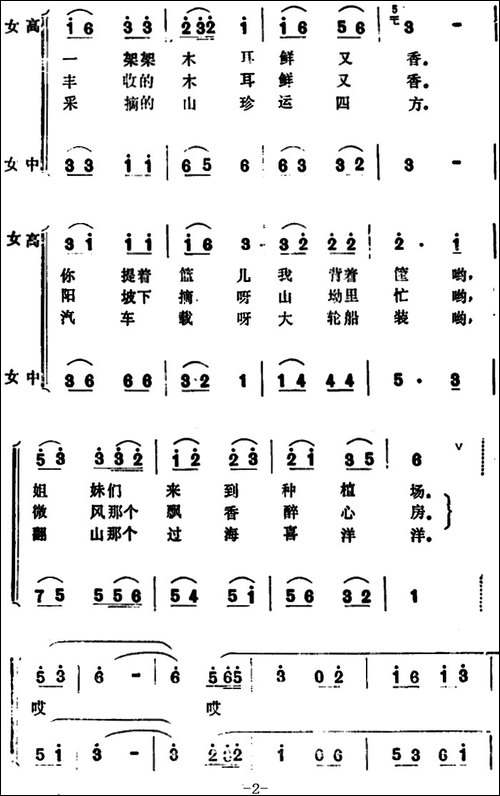 女高 i6 33 232 i i6 56 5 3 -
一 架架 木 耳 鲜 又 香。
丰 收的 木 耳 鲜 又 香。
采 摘的 山 珍 运 四 方。
女中 33 ii 65 6 63 32 3 -
女高 3i ii i6 3 32 22 2· i
你 提着 篮 儿 我 背着 筐 哟，
阳 坡下 摘 呀 山 坳里 忙 哟，
汽 车 载 呀 大 轮船 装 哟，
女中 36 66 3·2 1 14 44 5· 3
53 332 i2 23 2i 35 6 V
姐 妹们 来 到 种 植 场。
微 风那个 飘 香 醉 心 房。
翻 山那个 过 海 喜 洋 洋。
75 556 54 5i 56 32 1
53 6 - 6 565 3 02 i6 i3
哎 哎
5i 3 - 3 22 i 06 53 6i
-2-